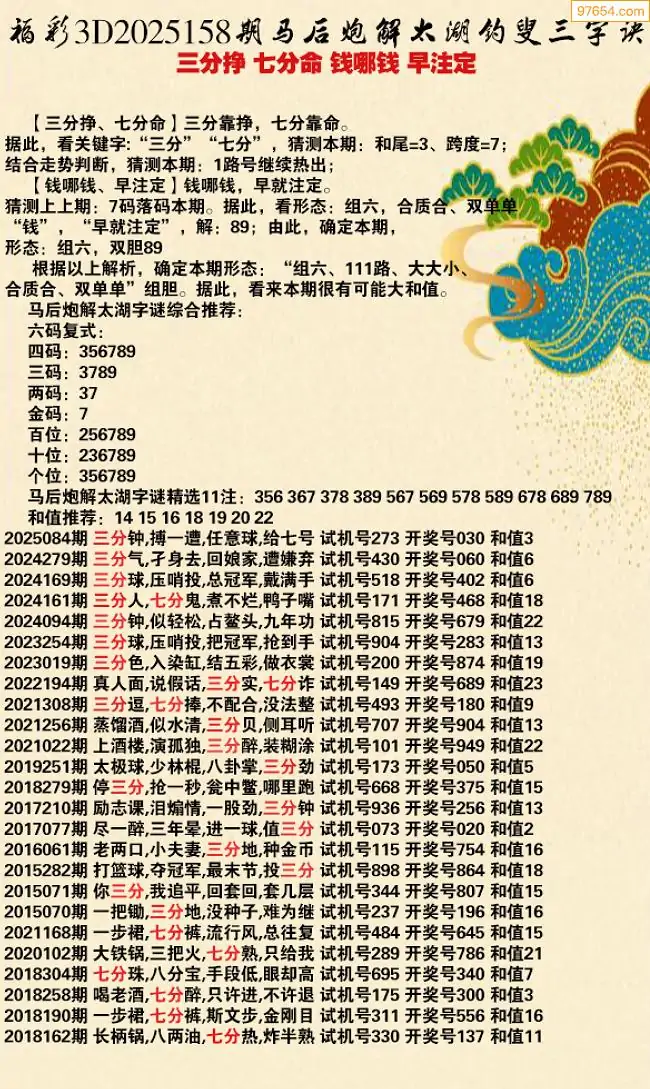 97654.com
福彩3D2025158期马后炮解太湖钓叟三字诀
三分挣 七分命 钱哪钱 早注定
【三分挣、七分命】三分靠挣，七分靠命。
据此，看关键字:“三分”“七分”，猜测本期：和尾=3、跨度=7；
结合走势判断，猜测本期：1路号继续热出；
【钱哪钱、早注定】钱哪钱，早就注定。
猜测上上期：7码落码本期。据此，看形态：组六，合质合、双单单
“钱”，“早就注定”，解：89；由此，确定本期，
形态：组六，双胆89
根据以上解析，确定本期形态：“组六、111路、大大小、
合质合、双单单”组胆。据此，看来本期很有可能大和值。
马后炮解太湖字谜综合推荐：
六码复式：
四码：356789
三码：3789
两码：37
金码：7
百位：256789
十位：236789
个位：356789
马后炮解太湖字谜精选11注：356 367 378 389 567 569 578 589 678 689 789
和值推荐：14 15 16 18 19 20 22
2025084期 三分钟,搏一遭,任意球,给七号 试机号273 开奖号030 和值3
2024279期 三分气,孑身去,回娘家,遭嫌弃 试机号430 开奖号060 和值6
2024169期 三分球,压哨投,总冠军,戴满手 试机号518 开奖号402 和值6
2024161期 三分人,七分鬼,煮不烂,鸭子嘴 试机号171 开奖号468 和值18
2024094期 三分钟,似轻松,占鳌头,九年功 试机号815 开奖号679 和值22
2023254期 三分球,压哨投,把冠军,抢到手 试机号904 开奖号283 和值13
2023019期 三分色,入染缸,结五彩,做衣裳 试机号200 开奖号874 和值19
2022194期 真人面,说假话,三分实,七分诈 试机号149 开奖号689 和值23
2021308期 三分逗,七分捧,不配合,没法整 试机号493 开奖号180 和值9
2021256期 蒸馏酒,似水清,三分贝,侧耳听 试机号707 开奖号904 和值13
2021022期 上酒楼,演孤独,三分醉,装糊涂 试机号101 开奖号949 和值22
2019251期 太极球,少林棍,八卦掌,三分劲 试机号173 开奖号050 和值5
2018279期 停三分,抢一秒,瓮中鳖,哪里跑 试机号668 开奖号375 和值15
2017210期 励志课,泪煽情,一股劲,三分钟 试机号936 开奖号256 和值13
2017077期 尽一醉,三年晕,进一球,值三分 试机号073 开奖号020 和值2
2016061期 老两口,小夫妻,三分地,种金币 试机号115 开奖号754 和值16
2015282期 打篮球,夺冠军,最末节,投三分 试机号898 开奖号864 和值18
2015071期 你三分,我追平,回套回,套几层 试机号344 开奖号807 和值15
2015070期 一把锄,三分地,没种子,难为继 试机号237 开奖号196 和值16
2021168期 一步裙,七分裤,流行风,总往复 试机号484 开奖号645 和值15
2020102期 大铁锅,三把火,七分熟,只给我 试机号289 开奖号786 和值21
2018304期 七分珠,八分宝,手段低,眼却高 试机号695 开奖号340 和值7
2018258期 喝老酒,七分醉,只许进,不许退 试机号175 开奖号300 和值3
2018190期 一步裙,七分裤,斯文步,金刚目 试机号311 开奖号556 和值16
2018162期 长柄锅,八两油,七分热,炸半熟 试机号330 开奖号137 和值11